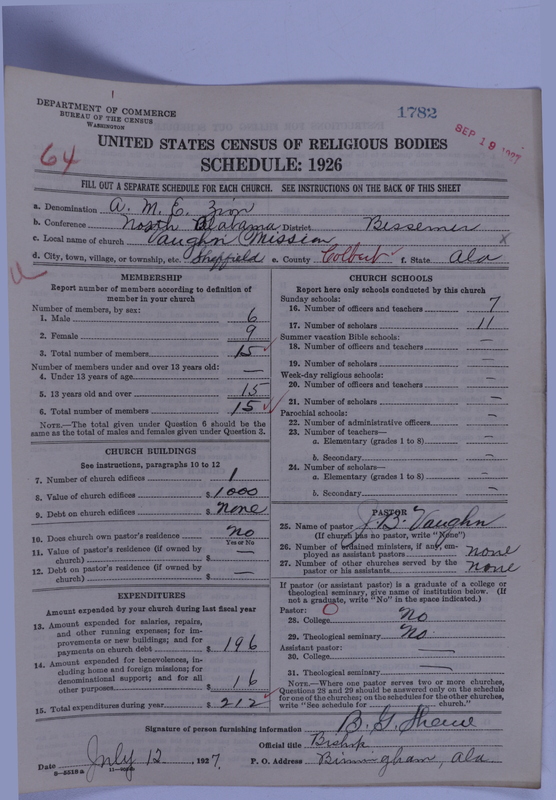 DEPARTMENT OF COMMERCE
BUREAU OF THE CENSUS
WASHINGTON
1782
SEP 19 1927
64
UNITED STATES CENSUS OF RELIGIOUS BODIES
SCHEDULE: 1926
FILL OUT A SEPARATE SCHEDULE FOR EACH CHURCH. SEE INSTRUCTIONS ON THE BACK OF THIS SHEET
a. Denomination A. M. E. Zion
b. Conference North Alabama District Bessemer
c. Local name of church Vaughn Mission x
d. City, town, village, or township, etc. Sheffield e. County Colbert f. State Ala
MEMBERSHIP
Report number of members according to definition of
member in your church
Number of members, by sex:
1. Male 6
2. Female 9
3. Total number of members 15
Number of members under and over 13 years old:
4. Under 13 years of age —
5. 13 years old and over 15
6. Total number of members 15
NOTE.—The total given under Question 6 should be the
same as the total of males and females given under Question 3.
CHURCH BUILDINGS
See instructions, paragraphs 10 to 12
7. Number of church edifices 1
8. Value of church edifices $ 1000
9. Debt on church edifices $ None
10. Does church own pastor's residence No
Yes or No
11. Value of pastor's residence (if owned by
church) $ —
12. Debt on pastor's residence (if owned by
church) $ —
EXPENDITURES
Amount expended by your church during last fiscal year
13. Amount expended for salaries, repairs,
and other running expenses; for im-
provements or new buildings; and for
payments on church debt $ 196
14. Amount expended for benevolences, in-
cluding home and foreign missions; for
denominational support; and for all
other purposes $ 16
15. Total expenditures during year $ 212
CHURCH SCHOOLS
Report here only schools conducted by this church
Sunday schools:
16. Number of officers and teachers 7
17. Number of scholars 11
Summer vacation Bible schools:
18. Number of officers and teachers —
19. Number of scholars —
Week-day religious schools:
20. Number of officers and teachers —
21. Number of scholars —
Parochial schools:
22. Number of administrative officers —
23. Number of teachers—
a. Elementary (grades 1 to 8) —
b. Secondary —
24. Number of scholars—
a. Elementary (grades 1 to 8) —
b. Secondary —
PASTOR
25. Name of pastor J. B. Vaughn
(If church has no pastor, write "None")
26. Number of ordained ministers, if any, em-
ployed as assistant pastors None
27. Number of other churches served by the
pastor or his assistants None
If pastor (or assistant pastor) is a graduate of a college or
theological seminary, give name of institution below. (If
not a graduate, write "No" in the space indicated.)
Pastor:
28. College No
29. Theological seminary No
Assistant pastor:
30. College —
31. Theological seminary —
NOTE.—Where one pastor serves two or more churches,
Questions 28 and 29 should be answered only on the schedule
for one of the churches; on the schedules for the other churches,
write "See schedule for church."
Signature of person furnishing information B. G. Shaw
Official title Bishop
Date July 12, 1927. P. O. Address Birmingham, Ala